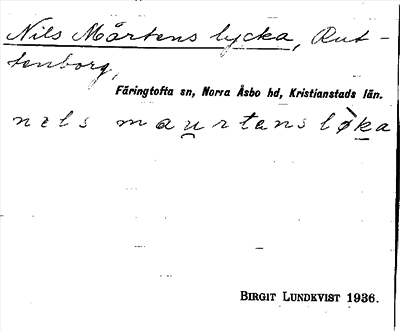 Nils Mårtens lycka, Rut-
tenborg,
Färingtofta sn, Norra Åsbo hd, Kristianstads län.
nɪls maurtans løka
BIRGIT LUNDKVIST 1936.